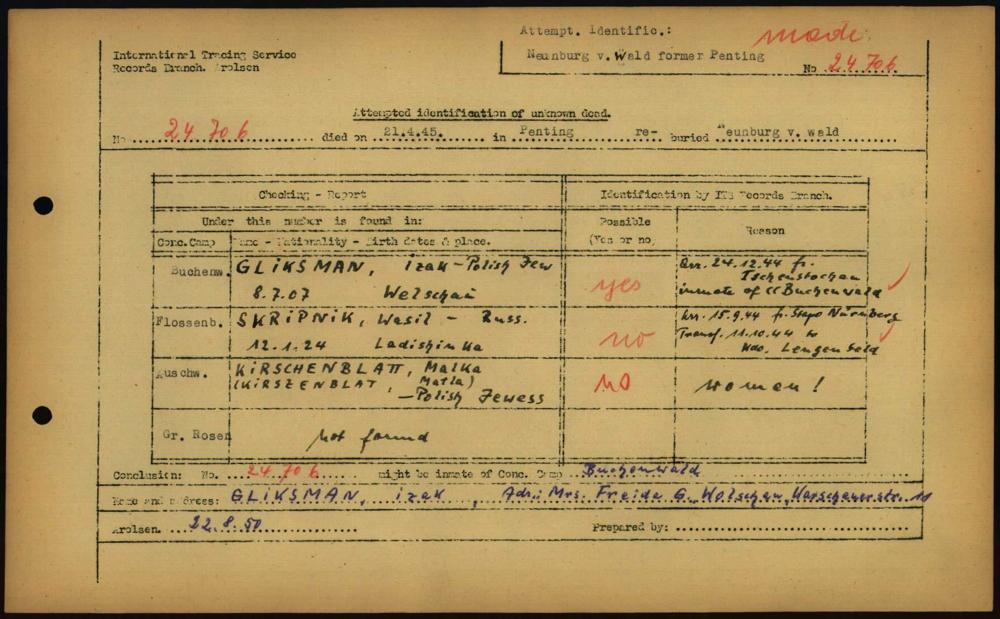 Attempt. Identific.: made
International Tracing Service
Records Branch. Arolsen
Neunburg v. Wald former Penting
No 24 706
Attempted identification of unknown dead.
No 24 706 died on 21.4.45. in Penting re-buried Neunburg v. wald
Checking - Report Identification by ITS Records Branch.
Under this number is found in: Possible Reason
Conc. Camp Name - Nationality - Birth dates & place. (Yes or no)
Buchenw. GLIKSMAN, izak - Polish Jew yes Arr. 24.12.44 fr.
8.7.07 Welschau Tschenstochau
inmate of CC Buchenwald
Flossenb. SKRIPNIK, Wasil - Russ. no Arr. 15.9.44 fr. Stapo Nürnberg
12.1.24 Ladishinka Transf. 11.10.44 to
Kdo. Lengenfeld
Auschw. KIRSCHENBLATT, Malka no women!
(KIRSZENBLAT, Matla)
- Polish Jewess
Gr. Rosen not found
Conclusion: No. 24 706 might be inmate of Conc. Camp Buchenwald
Name and address: GLIKSMAN, izak, Adr.: Mrs. Freida G. Wolschau, Warschauerstr. 11
Arolsen. 22.8.50 Prepared by: